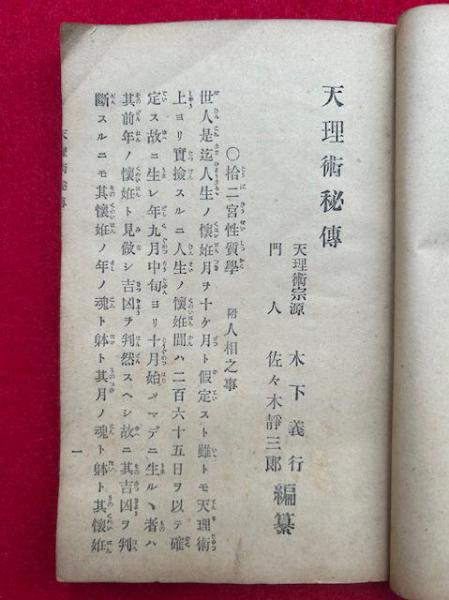 天理術秘傳
天理術宗源 木下義行
門人 佐々木靜三郎 編纂
〇拾二宮性質學 附人相之事
世人是迄人生ノ懷姙月ヲ十ケ月ト假定スト雖トモ天理術
上ヨリ實撿スルニ人生ノ懷姙間ハ二百六十五日ヲ以テ確
定ス故ニ生レ年九月中旬ヨリ十月始メマデニ生ルヽ者ハ
其前年ノ懷姙ト見做シ吉凶ヲ判然スヘシ故ニ其吉凶ヲ判
斷スルニモ其懷姙ノ年ノ魂ト躰ト其月ノ魂ト躰ト其懷姙
天理術秘傳
一